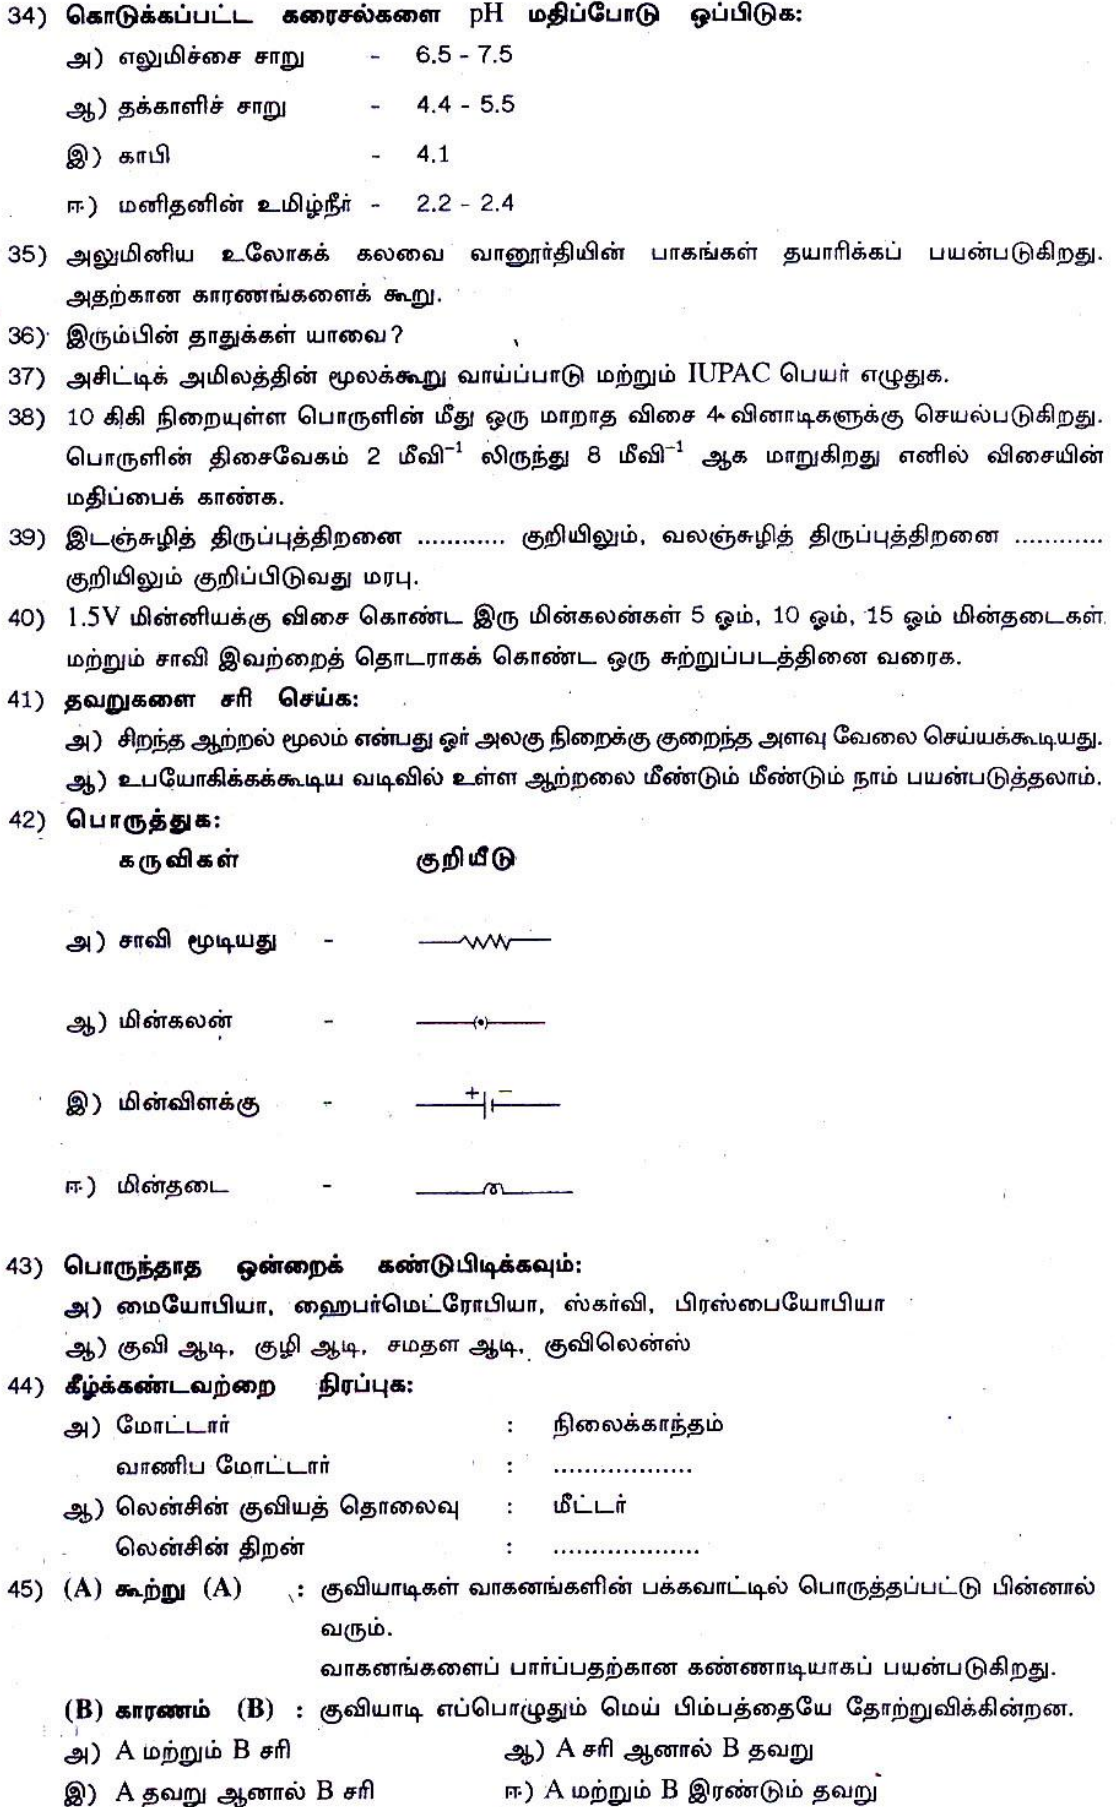 34) கொடுக்கப்பட்ட கரைசல்களை pH மதிப்போடு ஒப்பிடுக:
அ) எலுமிச்சை சாறு - 6.5 - 7.5
ஆ) தக்காளிச் சாறு - 4.4 - 5.5
இ) காபி - 4.1
ஈ) மனிதனின் உமிழ்நீர் - 2.2 - 2.4
35) அலுமினிய உலோகக் கலவை வானூர்தியின் பாகங்கள் தயாரிக்கப் பயன்படுகிறது.
அதற்கான காரணங்களைக் கூறு.
36) இரும்பின் தாதுக்கள் யாவை?
37) அசிட்டிக் அமிலத்தின் மூலக்கூறு வாய்ப்பாடு மற்றும் IUPAC பெயர் எழுதுக.
38) 10 கிகி நிறையுள்ள பொருளின் மீது ஒரு மாறாத விசை 4 வினாடிகளுக்கு செயல்படுகிறது.
பொருளின் திசைவேகம் 2 மீவி⁻¹ லிருந்து 8 மீவி⁻¹ ஆக மாறுகிறது எனில் விசையின்
மதிப்பைக் காண்க.
39) இடஞ்சுழித் திருப்புத்திறனை ............ குறியிலும், வலஞ்சுழித் திருப்புத்திறனை ............
குறியிலும் குறிப்பிடுவது மரபு.
40) 1.5V மின்னியக்கு விசை கொண்ட இரு மின்கலன்கள் 5 ஓம், 10 ஓம், 15 ஓம் மின்தடைகள்
மற்றும் சாவி இவற்றைத் தொடராகக் கொண்ட ஒரு சுற்றுப்படத்தினை வரைக.
41) தவறுகளை சரி செய்க:
அ) சிறந்த ஆற்றல் மூலம் என்பது ஓர் அலகு நிறைக்கு குறைந்த அளவு வேலை செய்யக்கூடியது.
ஆ) உபயோகிக்கக்கூடிய வடிவில் உள்ள ஆற்றலை மீண்டும் மீண்டும் நாம் பயன்படுத்தலாம்.
42) பொருத்துக:
கருவிகள் குறியீடு
அ) சாவி மூடியது -
ஆ) மின்கலன் -
இ) மின்விளக்கு - + −
ஈ) மின்தடை -
43) பொருந்தாத ஒன்றைக் கண்டுபிடிக்கவும்:
அ) மையோபியா, ஹைபர்மெட்ரோபியா, ஸ்கர்வி, பிரஸ்பையோபியா
ஆ) குவி ஆடி, குழி ஆடி, சமதள ஆடி, குவிலென்ஸ்
44) கீழ்க்கண்டவற்றை நிரப்புக:
அ) மோட்டார் : நிலைக்காந்தம்
வாணிப மோட்டார் : ..................
ஆ) லென்சின் குவியத் தொலைவு : மீட்டர்
லென்சின் திறன் : ...................
45) (A) கூற்று (A) : குவியாடிகள் வாகனங்களின் பக்கவாட்டில் பொருத்தப்பட்டு பின்னால்
வரும்.
வாகனங்களைப் பார்ப்பதற்கான கண்ணாடியாகப் பயன்படுகிறது.
(B) காரணம் (B) : குவியாடி எப்பொழுதும் மெய் பிம்பத்தையே தோற்றுவிக்கின்றன.
அ) A மற்றும் B சரி ஆ) A சரி ஆனால் B தவறு
இ) A தவறு ஆனால் B சரி ஈ) A மற்றும் B இரண்டும் தவறு